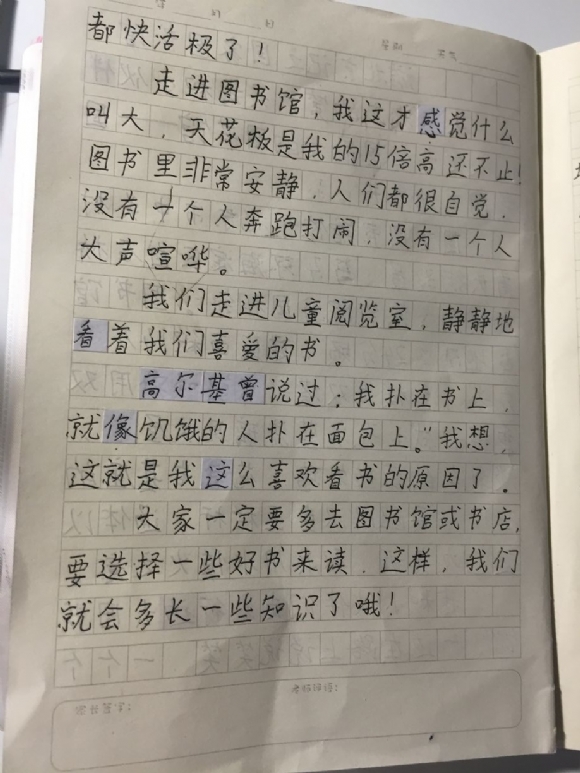 都快活极了！
走进图书馆，我这才感觉什么
叫大，天花板是我的15倍高还不止！
图书里非常安静，人们都很自觉，
没有一个人奔跑打闹，没有一个人
大声喧哗。
我们走进儿童阅览室，静静地
看着我们喜爱的书。
高尔基曾说过：我扑在书上，
就像饥饿的人扑在面包上。”我想，
这就是我这么喜欢看书的原因了。
大家一定要多去图书馆或书店，
要选择一些好书来读．这样，我们
就会多长一些知识了哦！
老师评语：
家长签字：